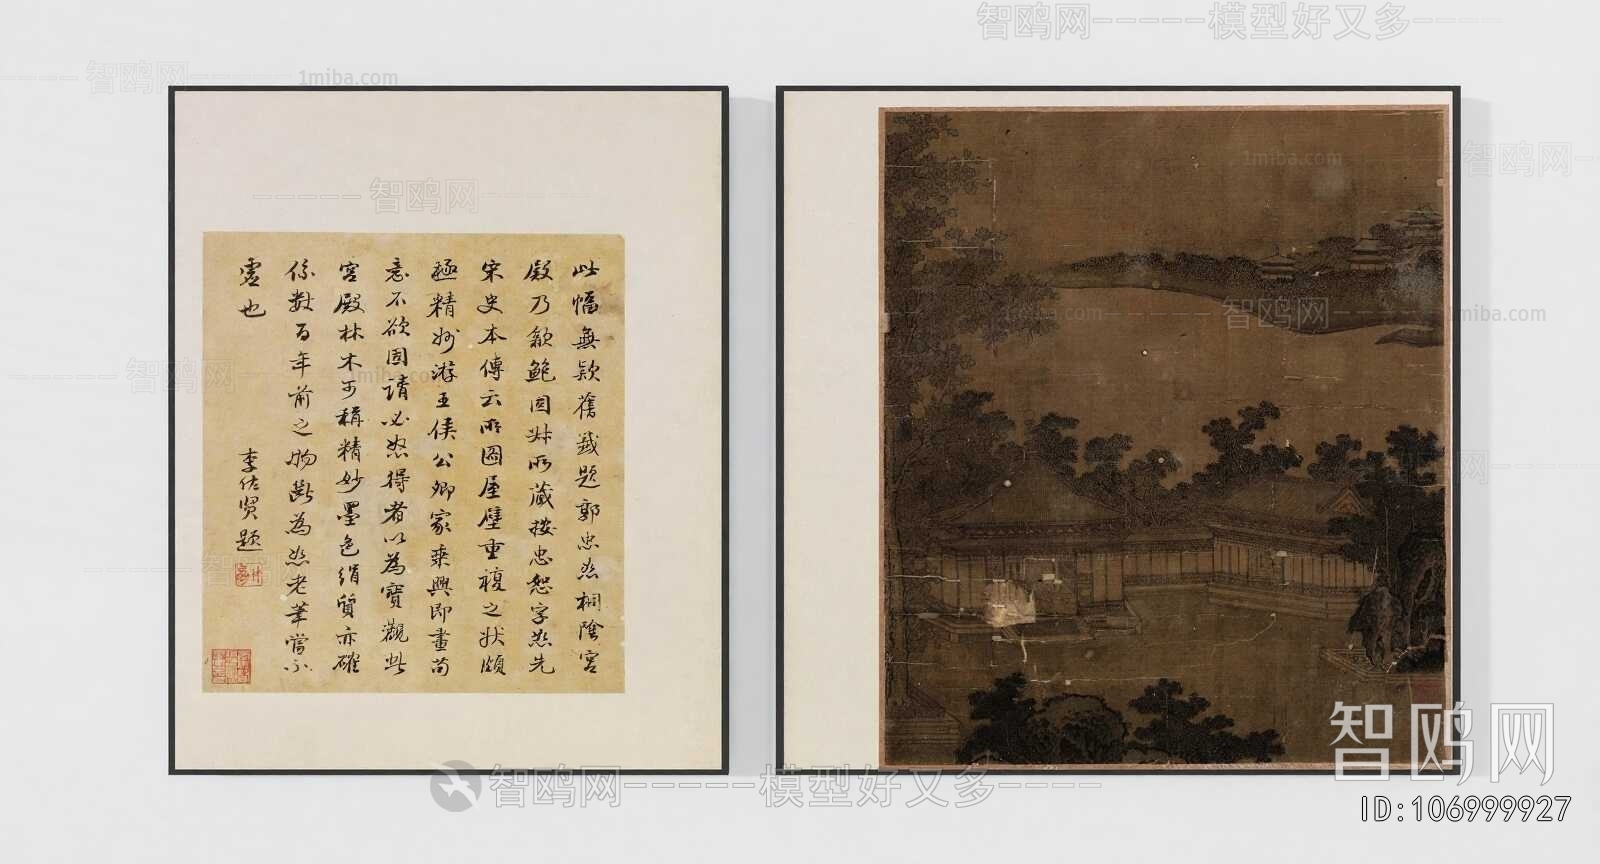 此幅無款舊籤題郭忠恕桐陰宮
殿乃歙鮑固叔所藏按忠恕字恕先
宋史本傳云所圖屋壁重複之狀頗
極精妙游王侯公卿家乘興即畫苟
意不欲固請必怒得者以為寶觀此
宮殿林木可稱精妙墨色絹質亦確
係數百年前之物斷為恕老筆當不
虛也
李佐贤题
智鸥网-----模型好又多----
智鸥网
1miba.com
智鸥网
ID:106999927